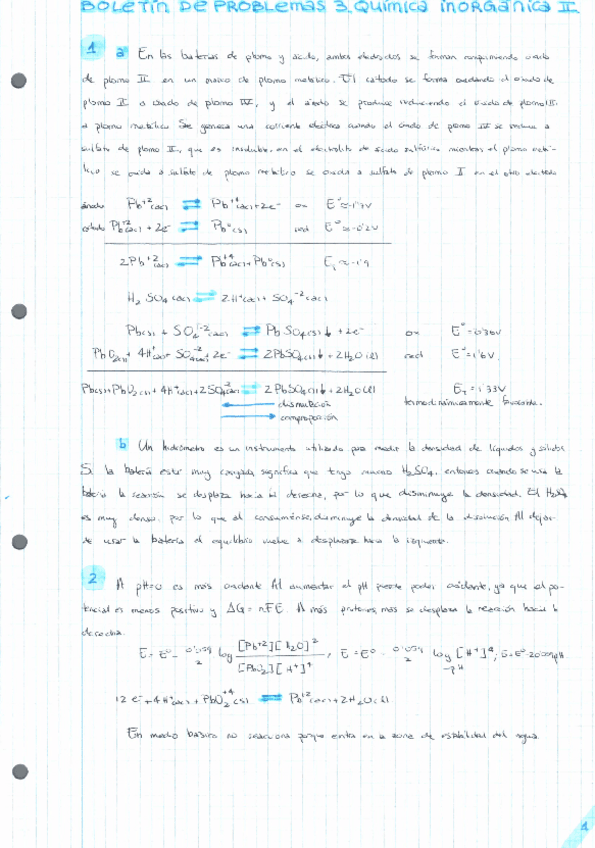 BOLETÍN DE PROBLEMAS 3. QUÍMICA INORGÁNICA II
1 a En las baterías de plomo y ácido, ambos electrodos se forman comprimiendo óxido
de plomo II en un marco de plomo metálico. El cátodo se forma oxidando el óxido de
plomo II a óxido de plomo IV, y el ánodo se produce reduciendo el óxido de plomo II
a plomo metálico. Se genera una corriente eléctrica cuando el óxido de plomo IV se reduce a
sulfato de plomo II, que es insoluble, en el electrolito de ácido sulfúrico mientras el plomo metá-
lico se oxida a sulfato de plomo se oxida a sulfato de plomo II en el otro electrodo
ánodo Pb+2(ac) ⇌ Pb+4(ac) + 2e- ox E°≈-1'7V
cátodo Pb+2(ac) + 2e- ⇌ Pb°(s) red E°≈-0'2V
2Pb+2(ac) ⇌ Pb+4(ac) + Pb°(s) E ≈-1'9
H2SO4(ac) ⇌ 2H+(ac) + SO4-2(ac)
Pb(s) + SO4-2(ac) ⇌ PbSO4(s)↓ + 2e- ox E°=0'36V
PbO2(s) + 4H+(ac) + SO4-2(ac) + 2e- ⇌ 2PbSO4(s)↓ + 2H2O(l) red E°=1'6V
Pb(s) + PbO2(s) + 4H+(ac) + 2SO4-2(ac) ⇌ 2PbSO4(s)↓ + 2H2O(l) ET = 1'33V
← dismutación termodinámicamente favorable.
→ comproporción
b Un hidrómetro es un instrumento utilizado para medir la densidad de líquidos y sólidos
Si la batería está muy cargada significa que tengo mucho H2SO4, entonces cuando se usa la
batería la reacción se desplaza hacia la derecha, por lo que disminuye la densidad. El H2SO4
es muy denso, por lo que al consumirse, disminuye la densidad de la disolución. Al dejar
de usar la batería el equilibrio vuelve a desplazarse hacia la izquierda.
2 A pH=0 es más oxidante. Al aumentar el pH pierde poder oxidante, ya que el po-
tencial es menos positivo y ΔG = nFE. A más protones, más se desplaza la reacción hacia la
derecha.
E = E° - 0'059/2 log [Pb+2][H2O]2/[PbO2][H+]4, E = E° - 0'059/2 log [H+]4; E = E°
-pH
2e- + 4H+(ac) + PbO2+4(s) ⇌ Pb+2(ac) + 2H2O(l)
En medio básico no reacciona porque entra en la zona de estabilidad del agua.
1